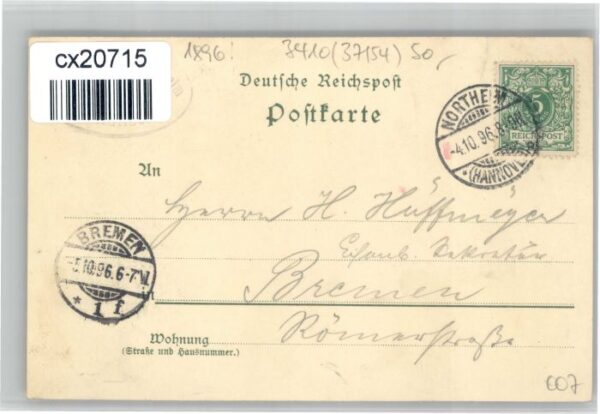 cx20715
1896!
3410 (37154) 50,-
Deutsche Reichspost
Postkarte
NORTHEIM
-4.10.96.8
(HANNOVER)
5
REICHSPOST
An
Herrn H. Hüffmeyer
Eisenb. Sekretär
BREMEN
5.10.96.6-7
* 1 f
in Bremen
Wohnung
Römerstraße
(Straße und Hausnummer.)
CO7